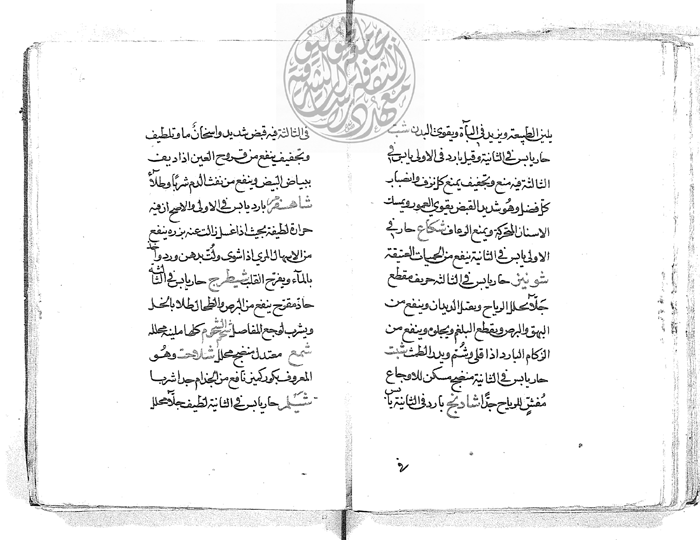 يلين الطبيعة ويزيد في الباه ويقوي البدن شب
حار يابس في الثانية وقيل بارد في الاولى يابس في
الثالثة فيه منع وتجفيف يمنع كل نزف وانصباب
كل فضل وهو شديد القبض يقوي العمور ويمسك
الاسنان المتحركة ويمنع الرعاف شكاع حار في
الاولى يابس في الثانية ينفع من الحميات العتيقة
شونيز حار يابس في الثالثة حريف مقطع
جلا محلل الرياح ويقتل الديدان وينفع من
البهق والبرص ويقطع البلغم ويجلوه وينفع من
الزكام البارد اذا قلي وشم ويدر الطمث شبت
حار يابس في الثانية منضج مسكن للاوجاع
مفش للرياح جدا شادنج بارد في الثانية يابس
في
في الثالثة فيه قبض شديد واسخان ما وتلطيف
وتجفيف ينفع من قروح العين اذا ديف
ببياض البيض وينفع من نفث الدم شربا وطلاء
شاهسفرم بارد يابس في الاولى والاصح ان فيه
حرارة لطيفة بحيث اذا غسل زالت عنه بزره ينفع
من الاسهال المري اذا شوي ولت بدهن ورد و
بالماء ويفرح القلب شيطرج حار يابس في الثالثة
حاد مقرح ينفع من البرص والطحال طلاء بالخل
ويشرب لوجع المفاصل شحم الشحوم كلها ملينة محللة
شمع معتدل منضج محلل وهو
المعروف نافع من الجذام جدا شربا
شيلم حار يابس في الثانية لطيف جلا محلل